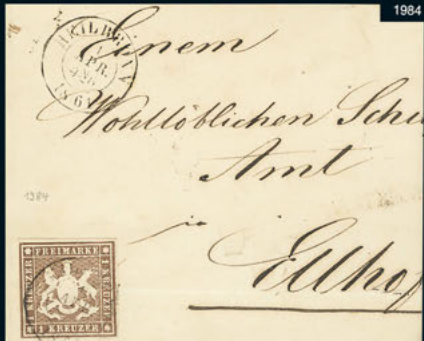 1984
HEILBRONN
1
APR.
1861
Einem
Wohllöblichen Schu
Amt
1984
in
Ellhof
FREIMARKE
1 KREUZER